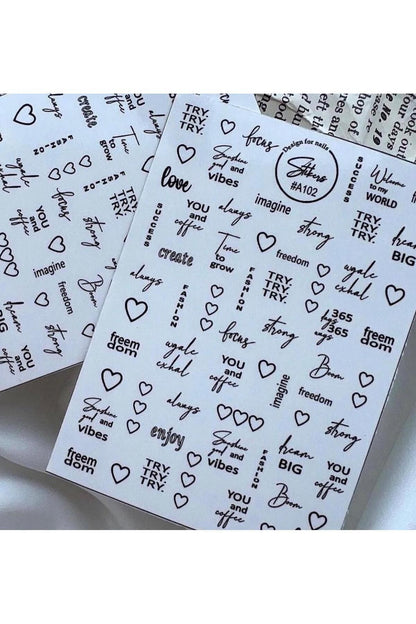 Design for nails
Stikers
#A102
TRY.
TRY.
TRY.
focus
SUCCESS
Welcome
to my
WORLD
Sunshine
and
vibes
love
always
imagine
strong
YOU
and
coffee
SUCCESS
Time
to
grow
freedom
inhale
exhale
create
FASHION
TRY.
TRY.
TRY.
always
FASHION
365
days
365
ways
freem
dom
focus
strong
inhale
exhale
YOU
and
coffee
Boom
imagine
freedom
freem
dom
always
strong
Sunshine
and
vibes
enjoy
Sunshine
and
vibes
FASHION
dream
BIG
freem
dom
TRY.
TRY.
TRY.
YOU
and
coffee
Boom
YOU
and
coffee
YOU
and
coffee
create
FASHION
Time
to
YOU
and
coffee
always
imagine
freedom
Boom
dream
BIG
YOU
and
coffee